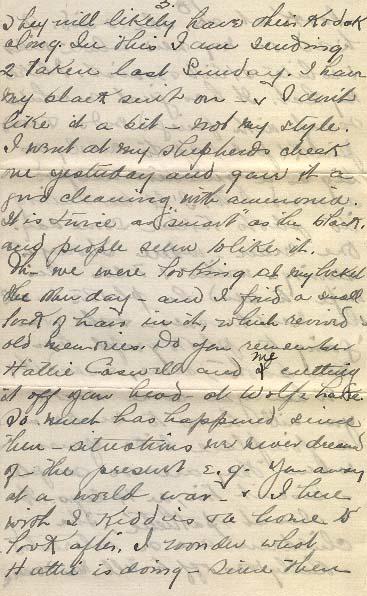 3.
They will likely have their Kodak
along. In this I am sending
2 taken last Sunday. I have
my black suit on - & I don't
like it a bit - not my style.
I went at my shepherds check
one yesterday and gave it a
good cleaning with ammonia.
It is twice as "smart" as the black.
and people seem to like it.
Oh - we were looking at my locket
the other day - and I found a small
lock of hair in it, which revived
old memories. Do you remember
Hattie Caswell and me cutting
it off your head - at Wolfe
So much has happened since
then - situations we never dreamed
of - the present e.g. You away
at a world war - & I here
with 2 Kiddies & a home to
look after. I wonder what
Hattie is doing - Since then